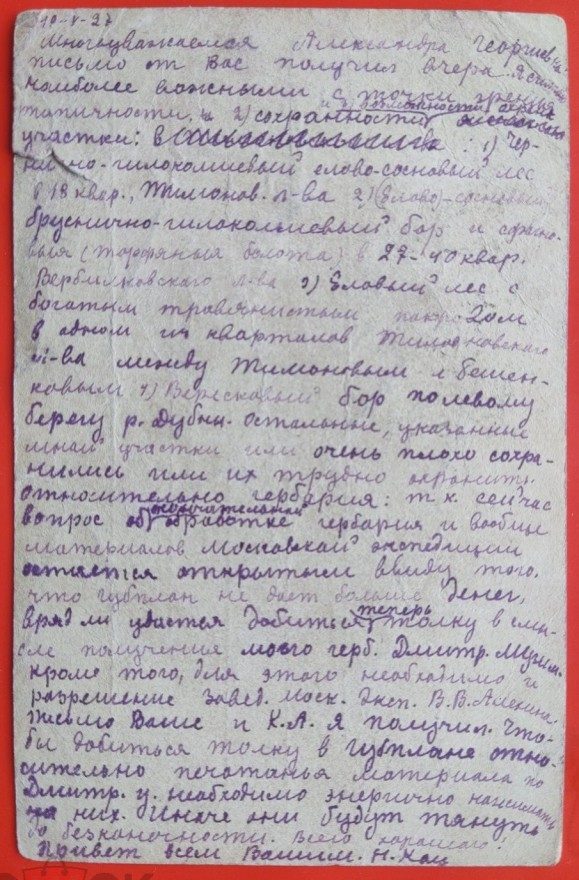 10-V-27
Многоуважаемая Александра Георгиевна
письмо от Вас получил вчера. Я считаю
наиболее важными с точки зрения
типичности, и 2) сохранности и возможности охраны
участки: 1) Чер-
нично-гилокомиевый елово-сосновый лес
в 18 квар., Тимонов. л-ва 2) Елово-сосновый
бруснично-гилокомиевый бор и сфагно-
вый (торфяныя болота) в 27-40 квар.
Вербилковского л-ва 3) Еловый лес с
богатым травянистым покровом
в одном из кварталов Тимоновского
л-ва между Тимоновым и Бешен-
ковым 4) Вересковый бор по левому
берегу р. Дубны. Остальные, указанные
мной участки или очень плохо сохра-
нились или их трудно охранить.
Относительно гербария: т.к. сейчас
вопрос об окончательной обработке гербария и вообще
материалов Московской экспедиции
остается открытым ввиду того,
что губплан не дает больше денег,
вряд ли удастся добиться теперь толку в смы-
сле получения моего герб. Дмитр. Музеем.
Кроме того, для этого необходимо и
разрешение Завед. Моск. Эксп. В.В. Алехина.
Письмо Ваше и К.А. я получил. Что-
бы добиться толку в губплане отно-
сительно печатанья материала по
Дмитр. у. необходимо энергично нажимать
на них. Иначе они будут тянуть
до безконечности. Всего хорошего!
Привет всем Вашим. Н. Кац